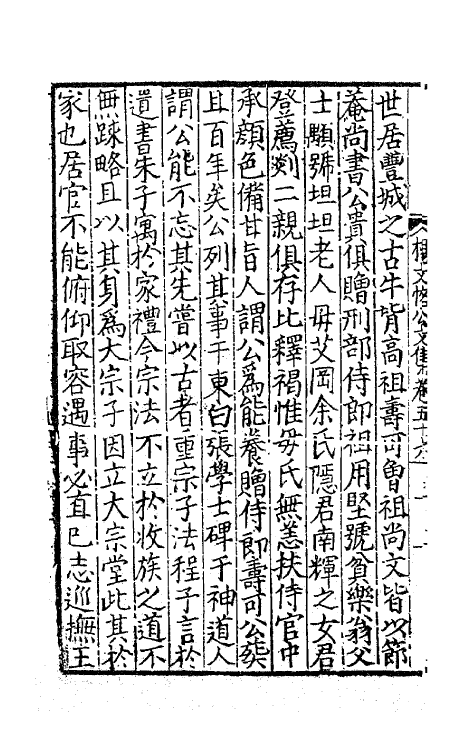 世居豐城之古牛背高祖壽可曾祖尚文皆以節
菴尚書公貴俱贈刑部侍郎祖用堅號貧樂翁父
士顒號坦坦老人毋艾岡余氏隱君南輝之女君
登薦剡二親俱存比釋褐惟毋氏無恙扶侍官中
承顔色備甘旨人謂公爲能養贈侍郎壽可公葬
且百年矣公列其事干東白張學士碑于神道人
謂公能不忘其先嘗以古者重宗子法程子言於
遺書朱子寓於家禮今宗法不立於收族之道不
無踈略且以其身爲大宗子因立大宗堂此其於
家也居官不能俯仰取容遇事必直已志巡撫王
楊文恪公文集卷五十六